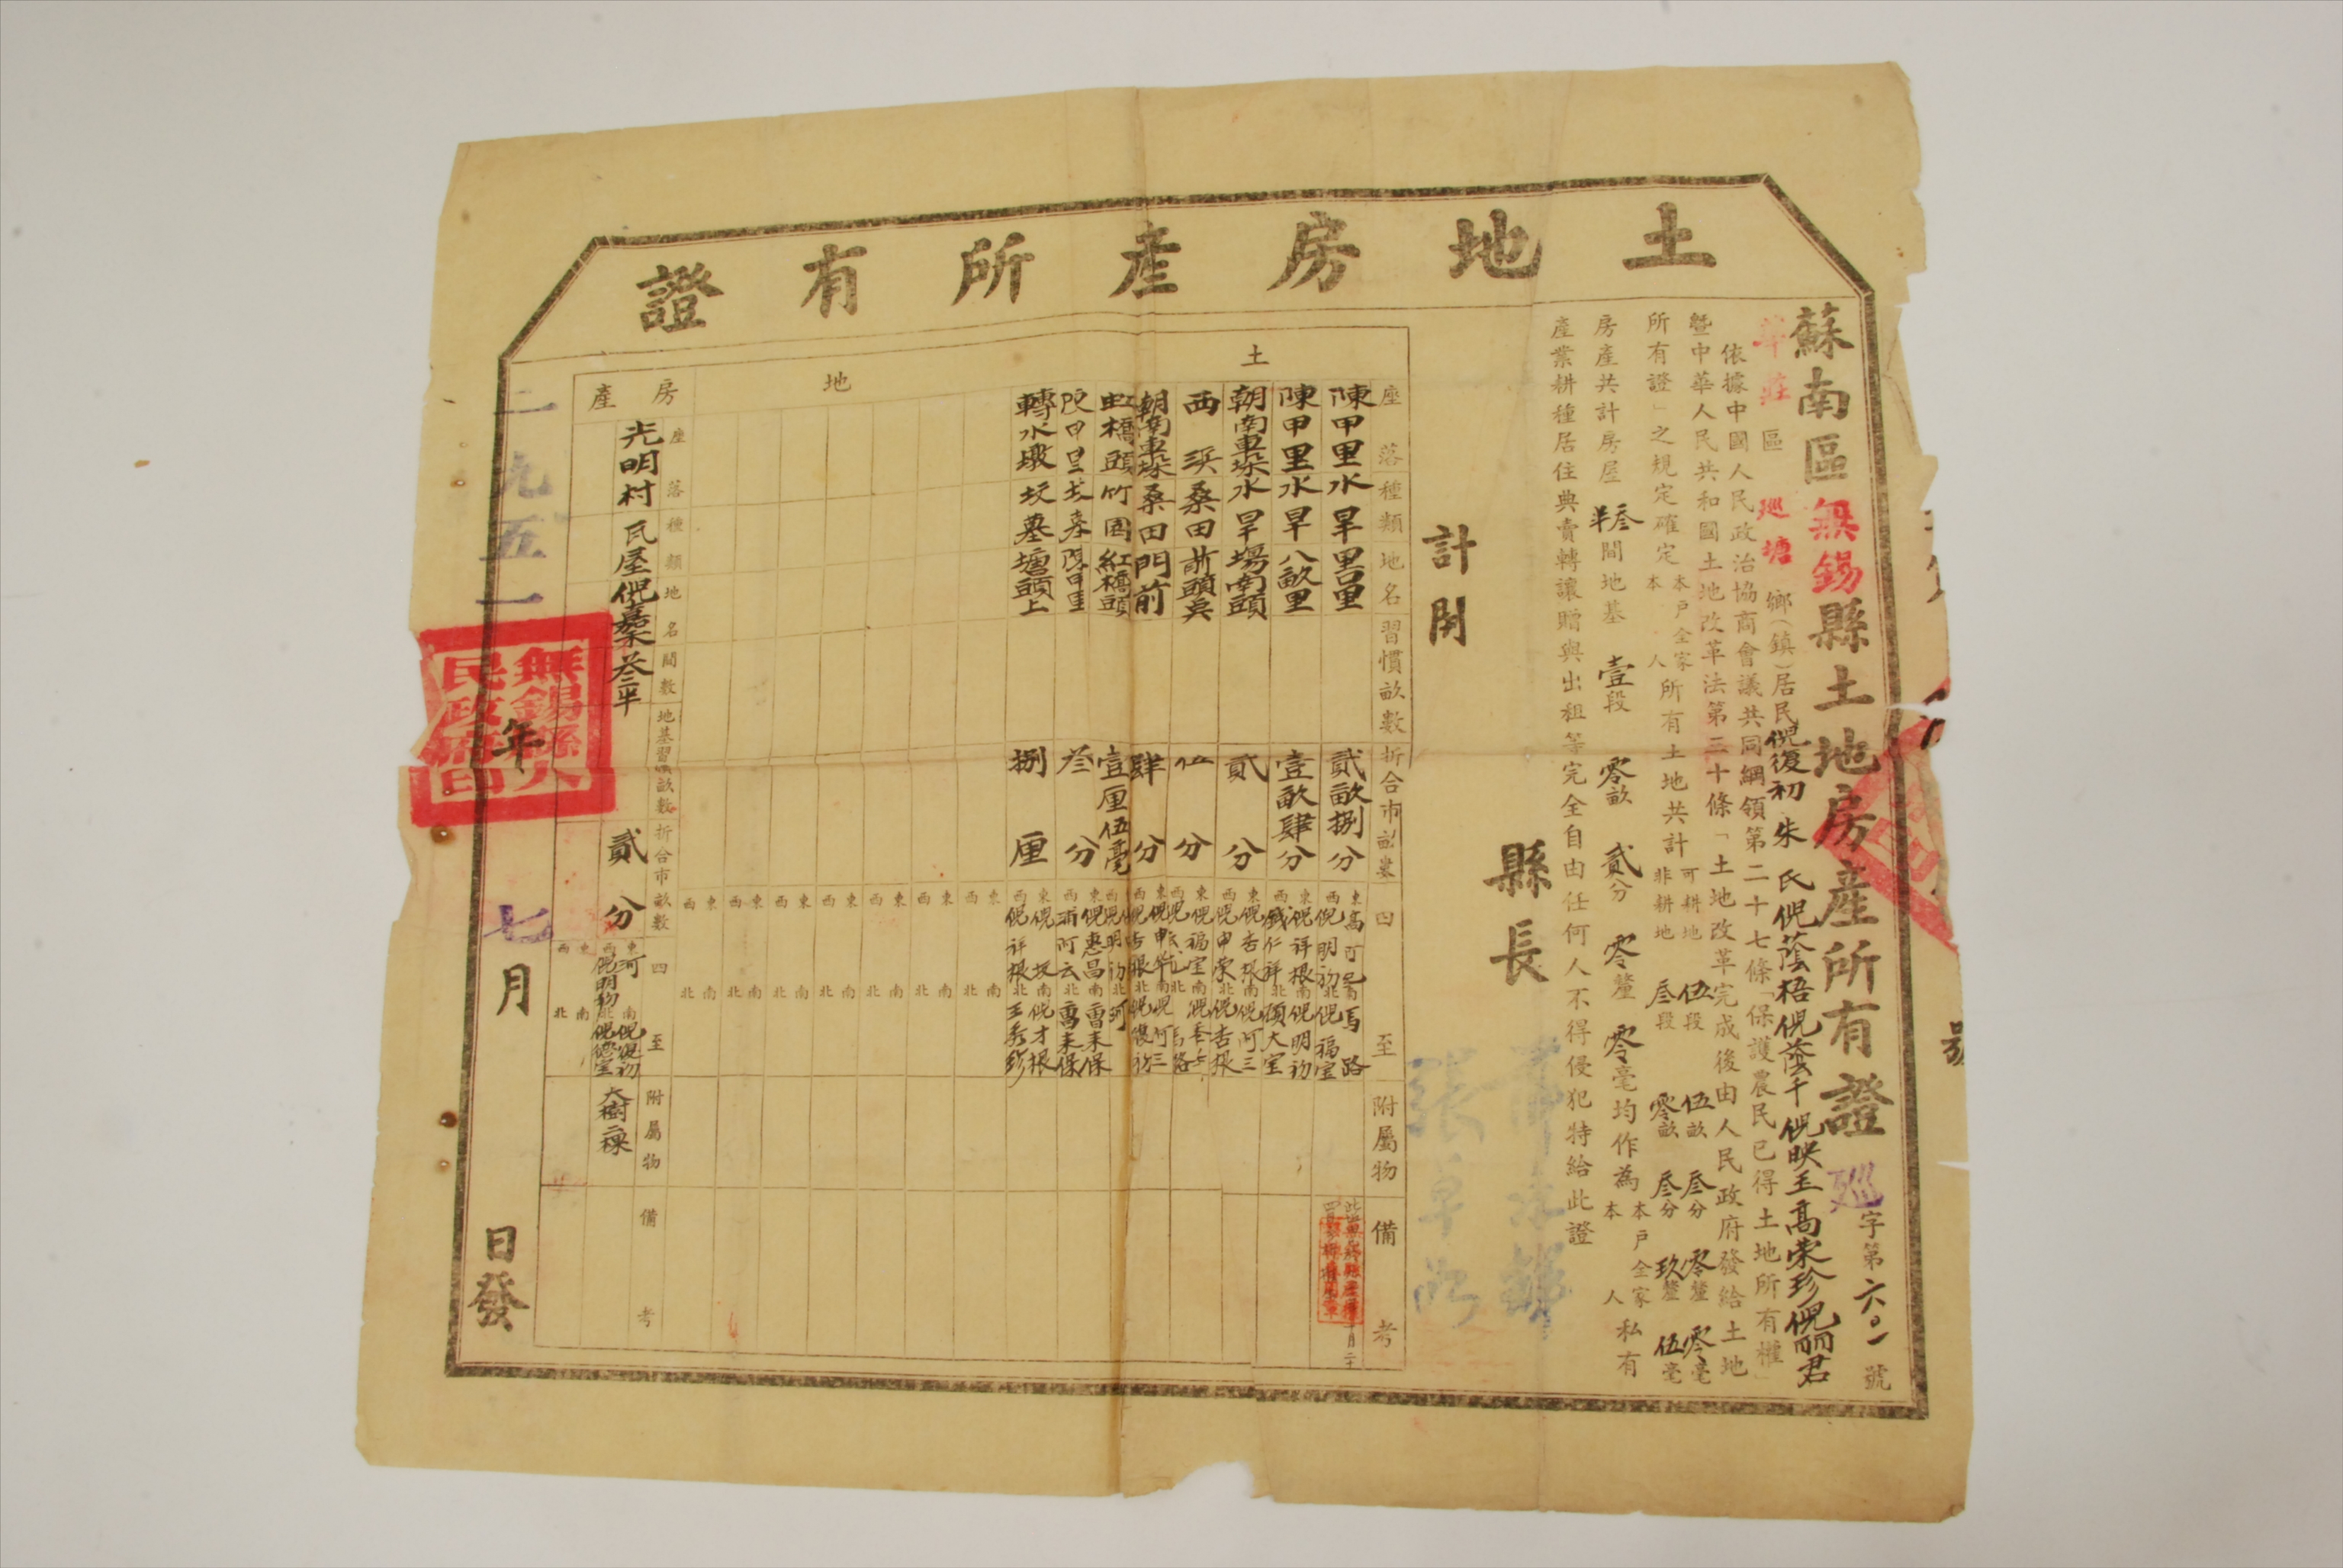 土地房產所有證
蘇南區無錫縣土地房產所有證 巡字第六〇一號
華莊區巡塘鄉(鎮)居民倪復初 朱氏 倪蔭梧 倪蔭千 倪映玉 高荣珍 倪丽君
依據中國人民政治協商會議共同綱領第二十七條「保護農民已得土地所有權」
暨中華人民共和國土地改革法第三十條「土地改革完成後由人民政府發給土地
所有證」之規定確定本戶全家本人所有土地共計可耕地伍段伍畝叁分零釐零毫非耕地叁段零畝叁分玖釐伍毫
房產共計房屋叁間半地基壹段零畝貳分零釐零毫均作為本戶全家本人私有
產業耕種居住典賣轉讓贈與出租等完全自由任何人不得侵犯特給此證
縣長
計開
土地
座落 種類 地名 習慣畝數 折合市畝數 四至 附屬物 備考
陳甲里 水旱 貳畝捌分 東 西倪明初 南馬路 北倪福宝
陳甲里 水旱 八畝里 壹畝肆分 東倪祥根 西錢仁祥 南倪明初 北須大宝
朝南車垛 水旱 場南頭 貳分 東倪杏根 西倪申荣 南倪阿三 北倪杏根
西浜 桑田 伍分 東倪福宝 西 南 北馬路
朝南車垛 桑田 門前 肆分 東倪申荣 西倪杏根 南倪阿三 北倪復初
虹橋頭 竹園 紅橋頭 壹厘伍毫 東 西倪明初 南 北河
陳甲里 陳甲里 叁分 東倪惠昌 西 南雷来保 北雷来保
轉水墩 坟墓 塘頭上 捌厘 東倪坟 西倪祥根 南倪才根 北王秀珍
東 西 南 北
東 西 南 北
東 西 南 北
東 西 南 北
東 西 南 北
東 西 南 北
東 西 南 北
房產
座落 種類 地名 間數 地基習慣畝數 折合市畝數 四至 附屬物 備考
光明村 瓦屋 叁半 貳分 東河 西倪明初 南倪復初 北倪德宝 大樹二棵
東 西 南 北
一九五一年七月 日發
無錫縣人民政府印
號